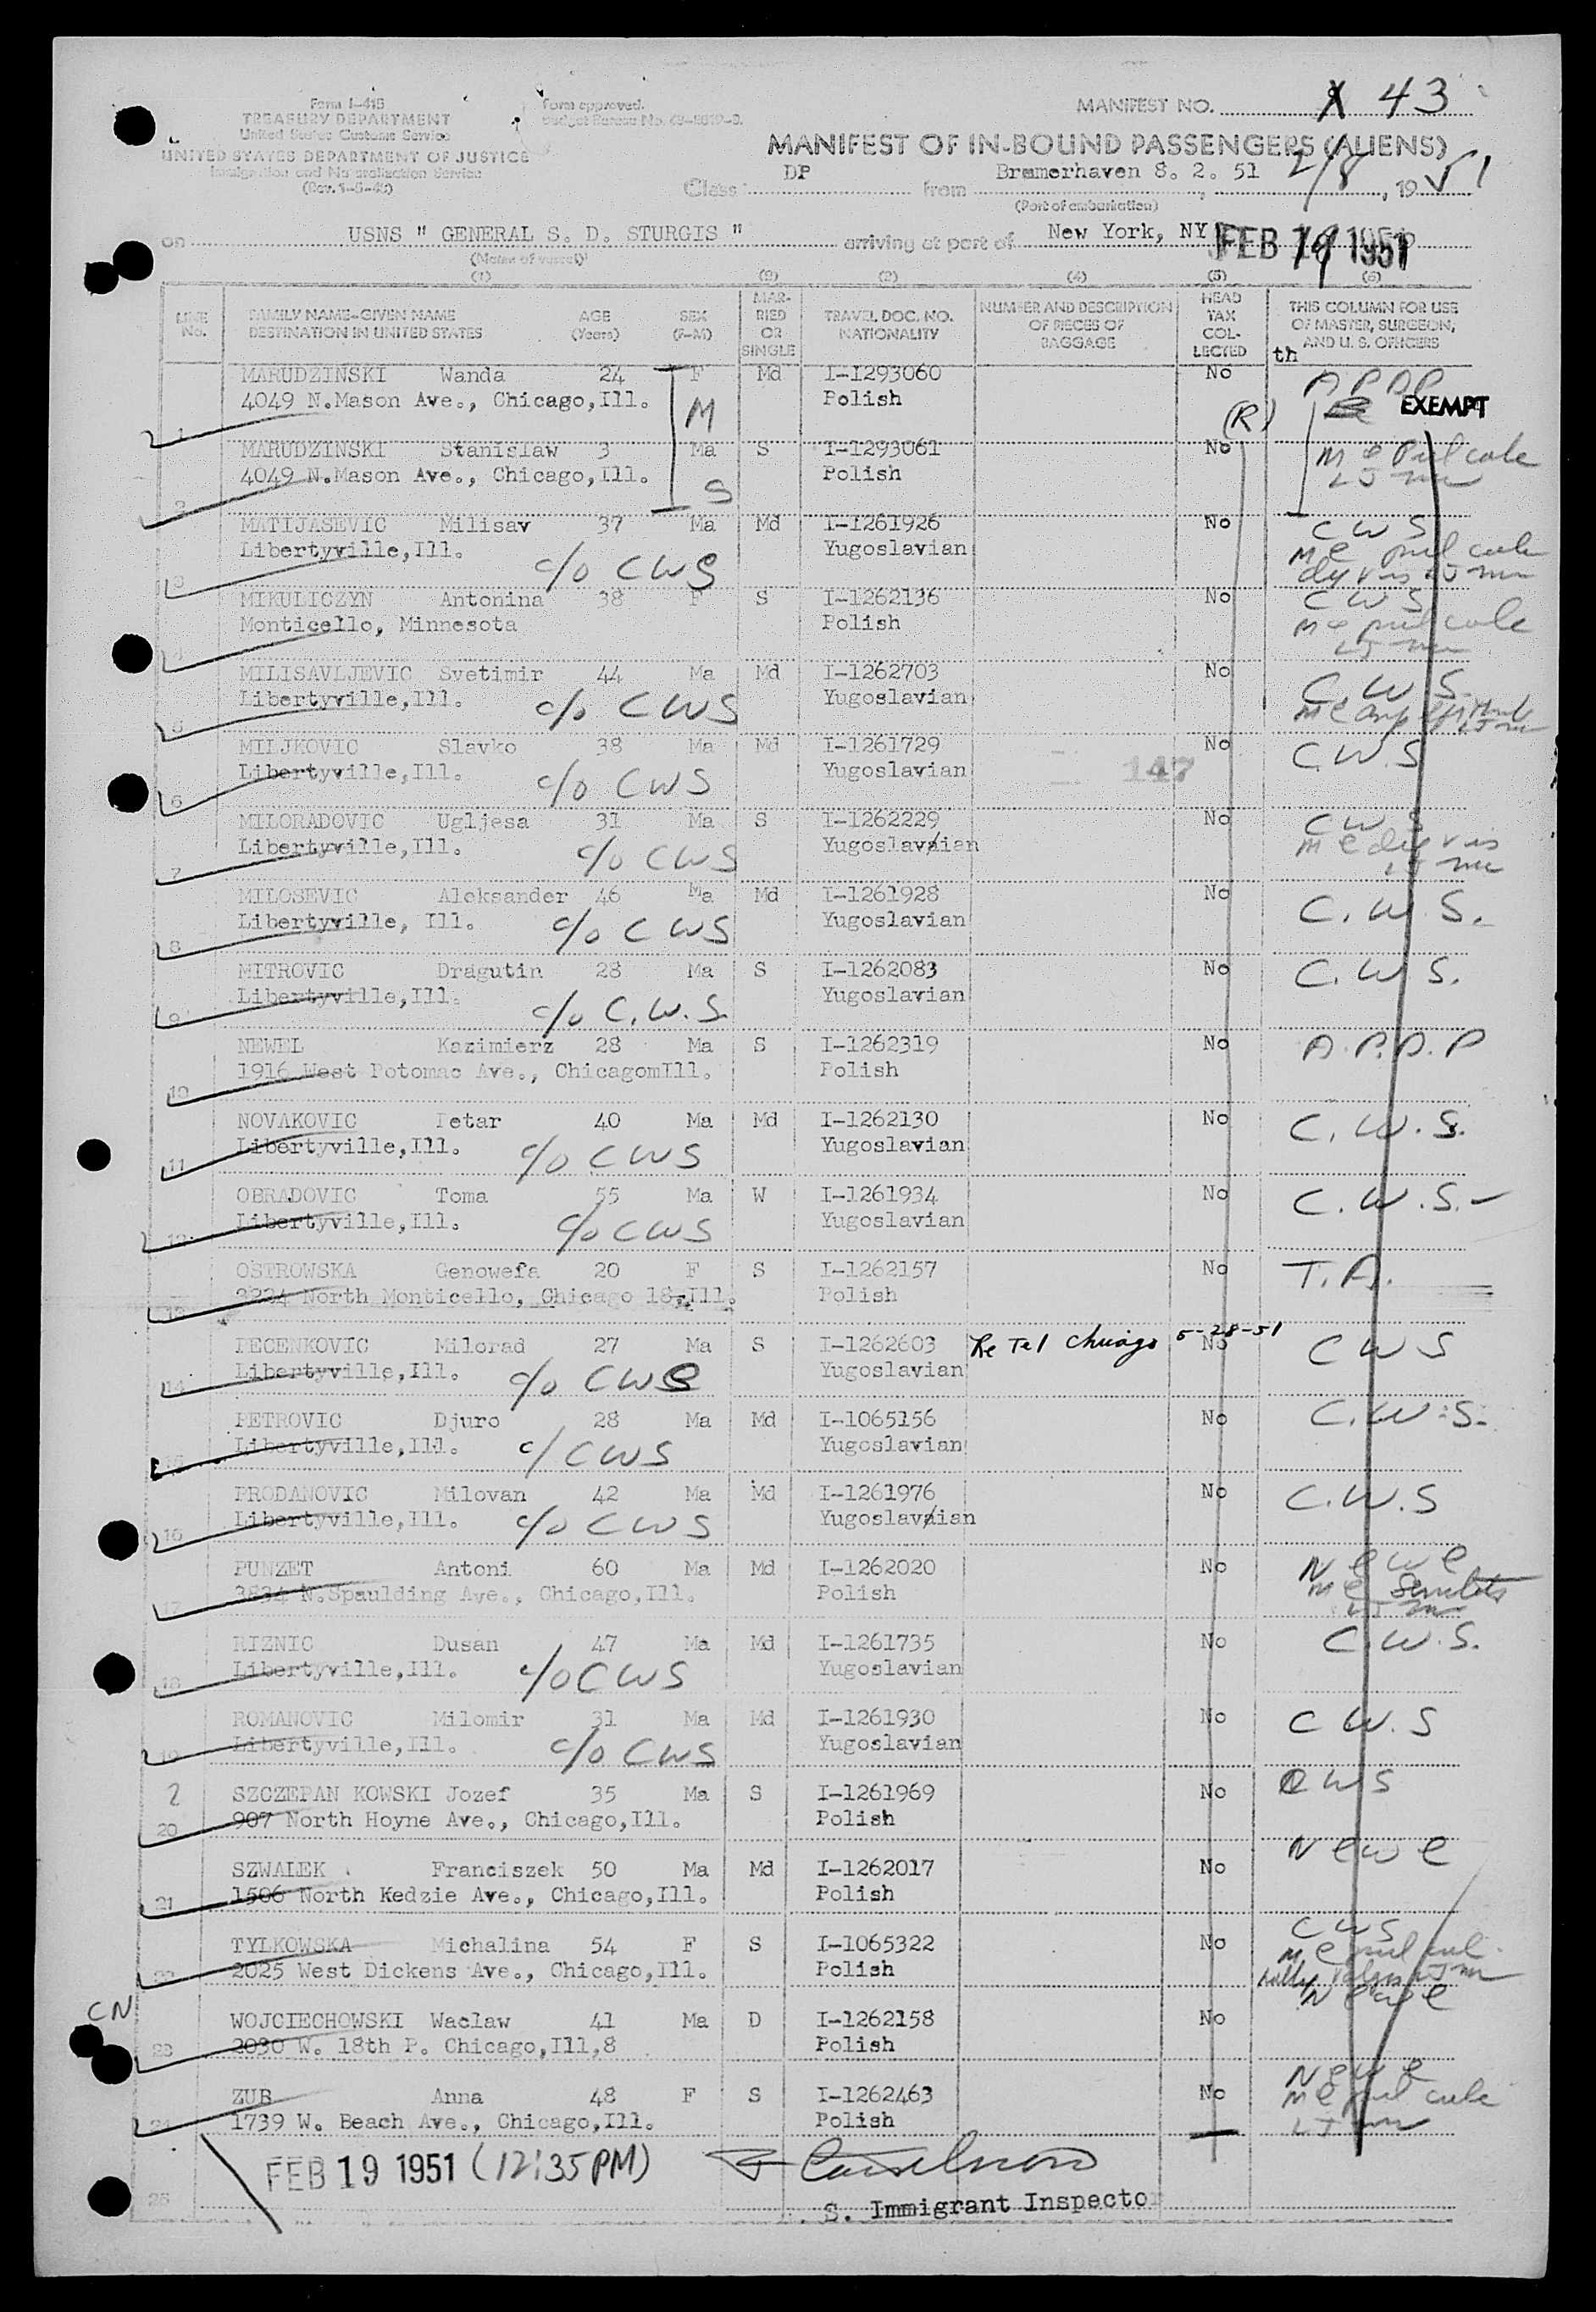 Form I-415
TREASURY DEPARTMENT
United States Customs Service
UNITED STATES DEPARTMENT OF JUSTICE
Immigration and Naturalization Service
Form approved.
MANIFEST NO. 43
MANIFEST OF IN-BOUND PASSENGERS (ALIENS)
Class DP from Bremerhaven 8. 2. 51 2/8, 1951
(Port of embarkation)
on USNS " GENERAL S. D. STURGIS " arriving at port of New York, NY FEB 19 1951
(Name of vessel)
(1) (2) (4) (5) (6)
LINE No. FAMILY NAME-GIVEN NAME DESTINATION IN UNITED STATES AGE (Years) SEX (F-M) MAR-RIED OR SINGLE TRAVEL DOC. NO. NATIONALITY NUMBER AND DESCRIPTION OF PIECES OF BAGGAGE HEAD TAX COL-LECTED THIS COLUMN FOR USE OF MASTER, SURGEON, AND U. S. OFFICERS
th
MARUDZINSKI Wanda 24 F Md I-1293060 No A P D P
1 4049 N.Mason Ave., Chicago,Ill. M Polish (R) EXEMPT
MARUDZINSKI Stanislaw 3 Ma S I-1293061 No
2 4049 N.Mason Ave., Chicago,Ill. S Polish
MATIJASEVIC Milisav 37 Ma Md I-1261926 No C W S
3 Libertyville,Ill. c/o CWS Yugoslavian
MIKULICZYN Antonina 38 F S I-1262136 No C W S
4 Monticello, Minnesota Polish
MILISAVLJEVIC Svetimir 44 Ma Md I-1262703 No C.W.S.
5 Libertyville,Ill. c/o CWS Yugoslavian
MILJKOVIC Slavko 38 Ma Md I-1261729 No C.W.S
6 Libertyville,Ill. c/o CWS Yugoslavian 147
MILORADOVIC Ugljesa 31 Ma S I-1262229 No C W S
7 Libertyville,Ill. c/o CWS Yugoslavaian
MILOSEVIC Aleksander 46 Ma Md I-1261928 No C. W. S.
8 Libertyville, Ill. c/o CWS Yugoslavian
MITROVIC Dragutin 28 Ma S I-1262083 No C. W. S.
9 Libertyville,Ill. c/o C.W.S. Yugoslavian
NEWEL Kazimierz 28 Ma S I-1262319 No A.P.D.P
10 1916 West Potomac Ave., ChicagomIll. Polish
NOVAKOVIC Petar 40 Ma Md I-1262130 No C. W. S.
11 Libertyville,Ill. c/o CWS Yugoslavian
OBRADOVIC Toma 55 Ma W I-1261934 No C. W. S.-
12 Libertyville,Ill. c/o CWS Yugoslavian
OSTROWSKA Genowefa 20 F S I-1262157 No T. A.
13 3234 North Monticello, Chicago 18,Ill. Polish
PECENKOVIC Milorad 27 Ma S I-1262603 Re Tel Chicago 5-28-51 No C W S
14 Libertyville,Ill. c/o CWS Yugoslavian
PETROVIC Djuro 28 Ma Md I-1065156 No C.W.S.
15 Libertyville,Ill. c/ CWS Yugoslavian
PRODANOVIC Milovan 42 Ma Md I-1261976 No C.W.S
16 Libertyville,Ill. c/o CWS Yugoslavaian
PUNZET Antoni 60 Ma Md I-1262020 No N e w e
17 3834 N.Spaulding Ave., Chicago,Ill. Polish
RIZNIC Dusan 47 Ma Md I-1261735 No C.W.S.
18 Libertyville,Ill. c/o CWS Yugoslavian
ROMANOVIC Milomir 31 Ma Md I-1261930 No C W.S
19 Libertyville,Ill. c/o CWS Yugoslavian
2 SZCZEPAN KOWSKI Jozef 35 Ma S I-1261969 No CWS
20 907 North Hoyne Ave., Chicago,Ill. Polish
SZWALEK Franciszek 50 Ma Md I-1262017 No N e w e
21 1506 North Kedzie Ave., Chicago,Ill. Polish
TYLKOWSKA Michalina 54 F S I-1065322 No CWS
22 2025 West Dickens Ave., Chicago,Ill. Polish
CN WOJCIECHOWSKI Waclaw 41 Ma D I-1262158 No N e w e
23 2030 W. 18th P. Chicago,Ill,8 Polish
ZUB Anna 48 F S I-1262463 No N e w e
24 1739 W. Beach Ave., Chicago,Ill. Polish
FEB 19 1951 (12:35 PM)
25 . S. Immigrant Inspector